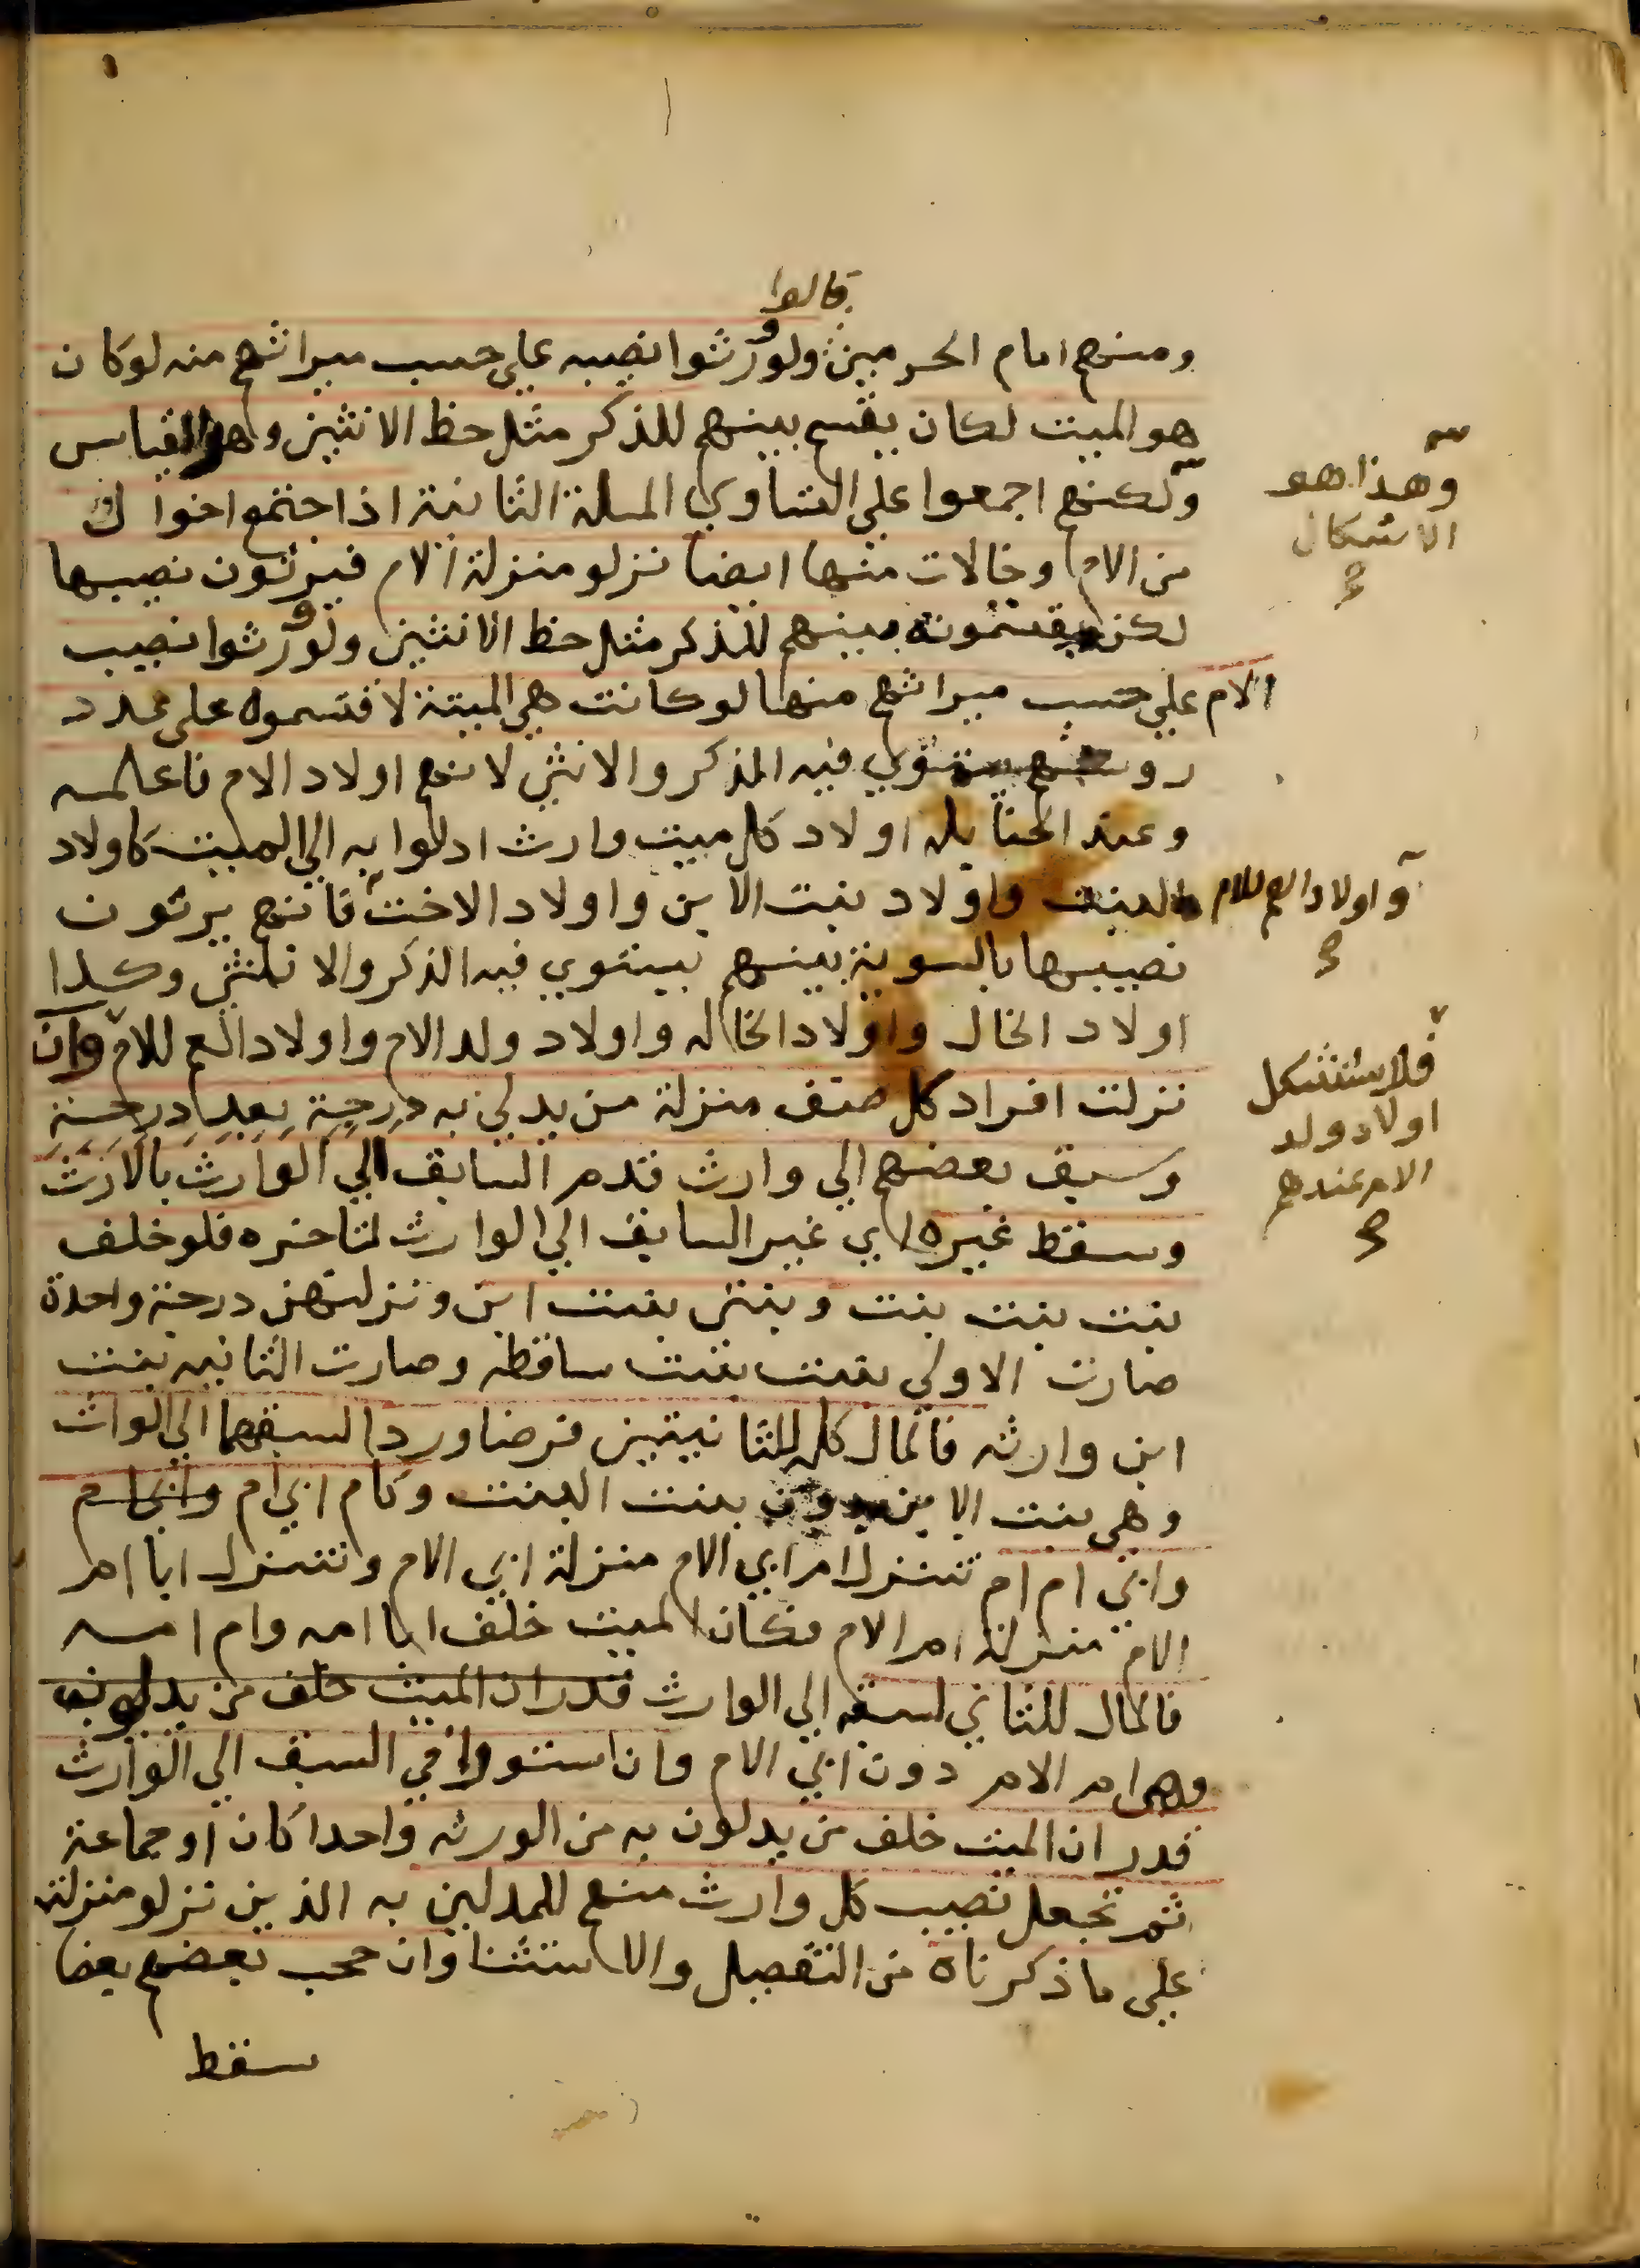 قالوا
ومنهم امام الحرمين ولو ورثوا نصيبه على حسب ميراثهم منه لو كان
هو الميت لكان يقسم بينهم للذكر مثل حظ الانثيين وهو القياس
ولكنهم اجمعوا على التساوي المسلة الثانية اذا اجتمع اخوال
من الام وخالات منها ايضا نزلو منزلة الام فيرثون نصيبها
لكن يقتسمونه بينهم للذكر مثل حظ الانثيين ولو ورثوا نصيب
الام على حسب ميراثهم منها لو كانت هي الميتة لاقتسموه على عدد
روسهم يستوي فيه الذكر والانثى لانهم اولاد الام فاعلمه
وعند الحنابله اولاد كل ميت وارث ادلوا به الى الميت كاولاد
البنت واولاد بنت الابن واولاد الاخت فانهم يرثون
نصيبها بالسوية بينهم يستوي فيه الذكر والانثى وكذا
اولاد الخال واولاد الخاله واولاد ولد الام واولاد العم للام وان
نزلت افراد كل صنف منزلة من يدلي به درجة بعد درجة
وسبق بعضهم الي وارث قدم السابق الي الوارث بالارث
وسقط غيره اي غير السابق الي الوارث لتاخره فلو خلف
بنت بنت بنت وبنتي بنت ابن ونزلتهن درجة واحدة
صارت الاولي بنت بنت ساقطه وصارت الثانيه بنت
ابن وارثه فالمال كله للثانيتين فرضا وردا لسبقهما الي الوارث
وهي بنت الابن دون بنت البنت وكام ابي ام وابي ام
وابي ام ام تنزل ام ابي الام منزلة ابي الام وتنزل ابا ام
الام منزلة ام الام فكان الميت خلف ابا امه وام امه
فالمال للثاني لسبقه الي الوارث قدر ان الميت خلف من يدلي به
وهو ام الام دون ابي الام وان استووا في السبق الي الوارث
قدر ان الميت خلف من يدلون به من الورثه واحدا كان او جماعة
ثم تجعل نصيب كل وارث منهم للمدلين به الذين نزلو منزلته
على ما ذكرناه من التفصيل والاستثنا وان حجب بعضهم بعضا
سقط
وهذا هو
الاشكال
واولاد العم للام
فلا يستشكل
اولاد ولد
الام عندهم